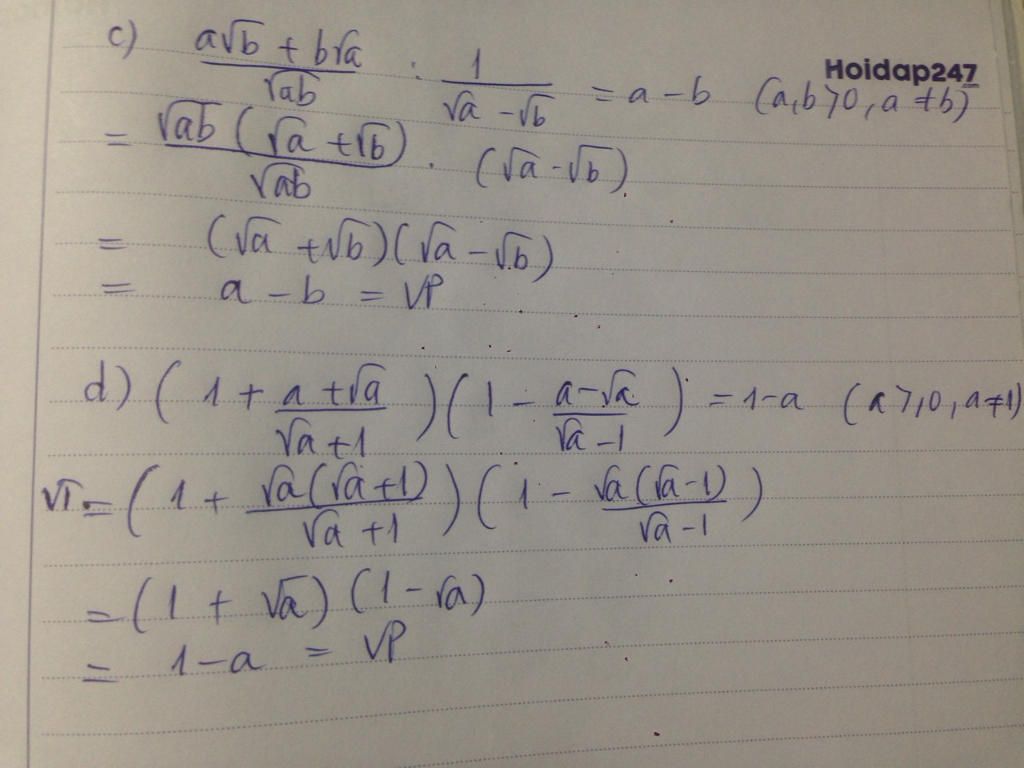 c) (a√b + b√a)/√ab : 1/(√a - √b) = a - b (a,b>0, a≠b)
Hoidap247
= √ab (√a + √b)/√ab . (√a - √b)
= (√a + √b)(√a - √b)
= a - b = VP
d) (1 + (a + √a)/(√a + 1))(1 - (a - √a)/(√a - 1)) = 1 - a (a ≥ 0, a ≠ 1)
VT = (1 + √a(√a + 1)/(√a + 1))(1 - √a(√a - 1)/(√a - 1))
= (1 + √a)(1 - √a)
= 1 - a = VP